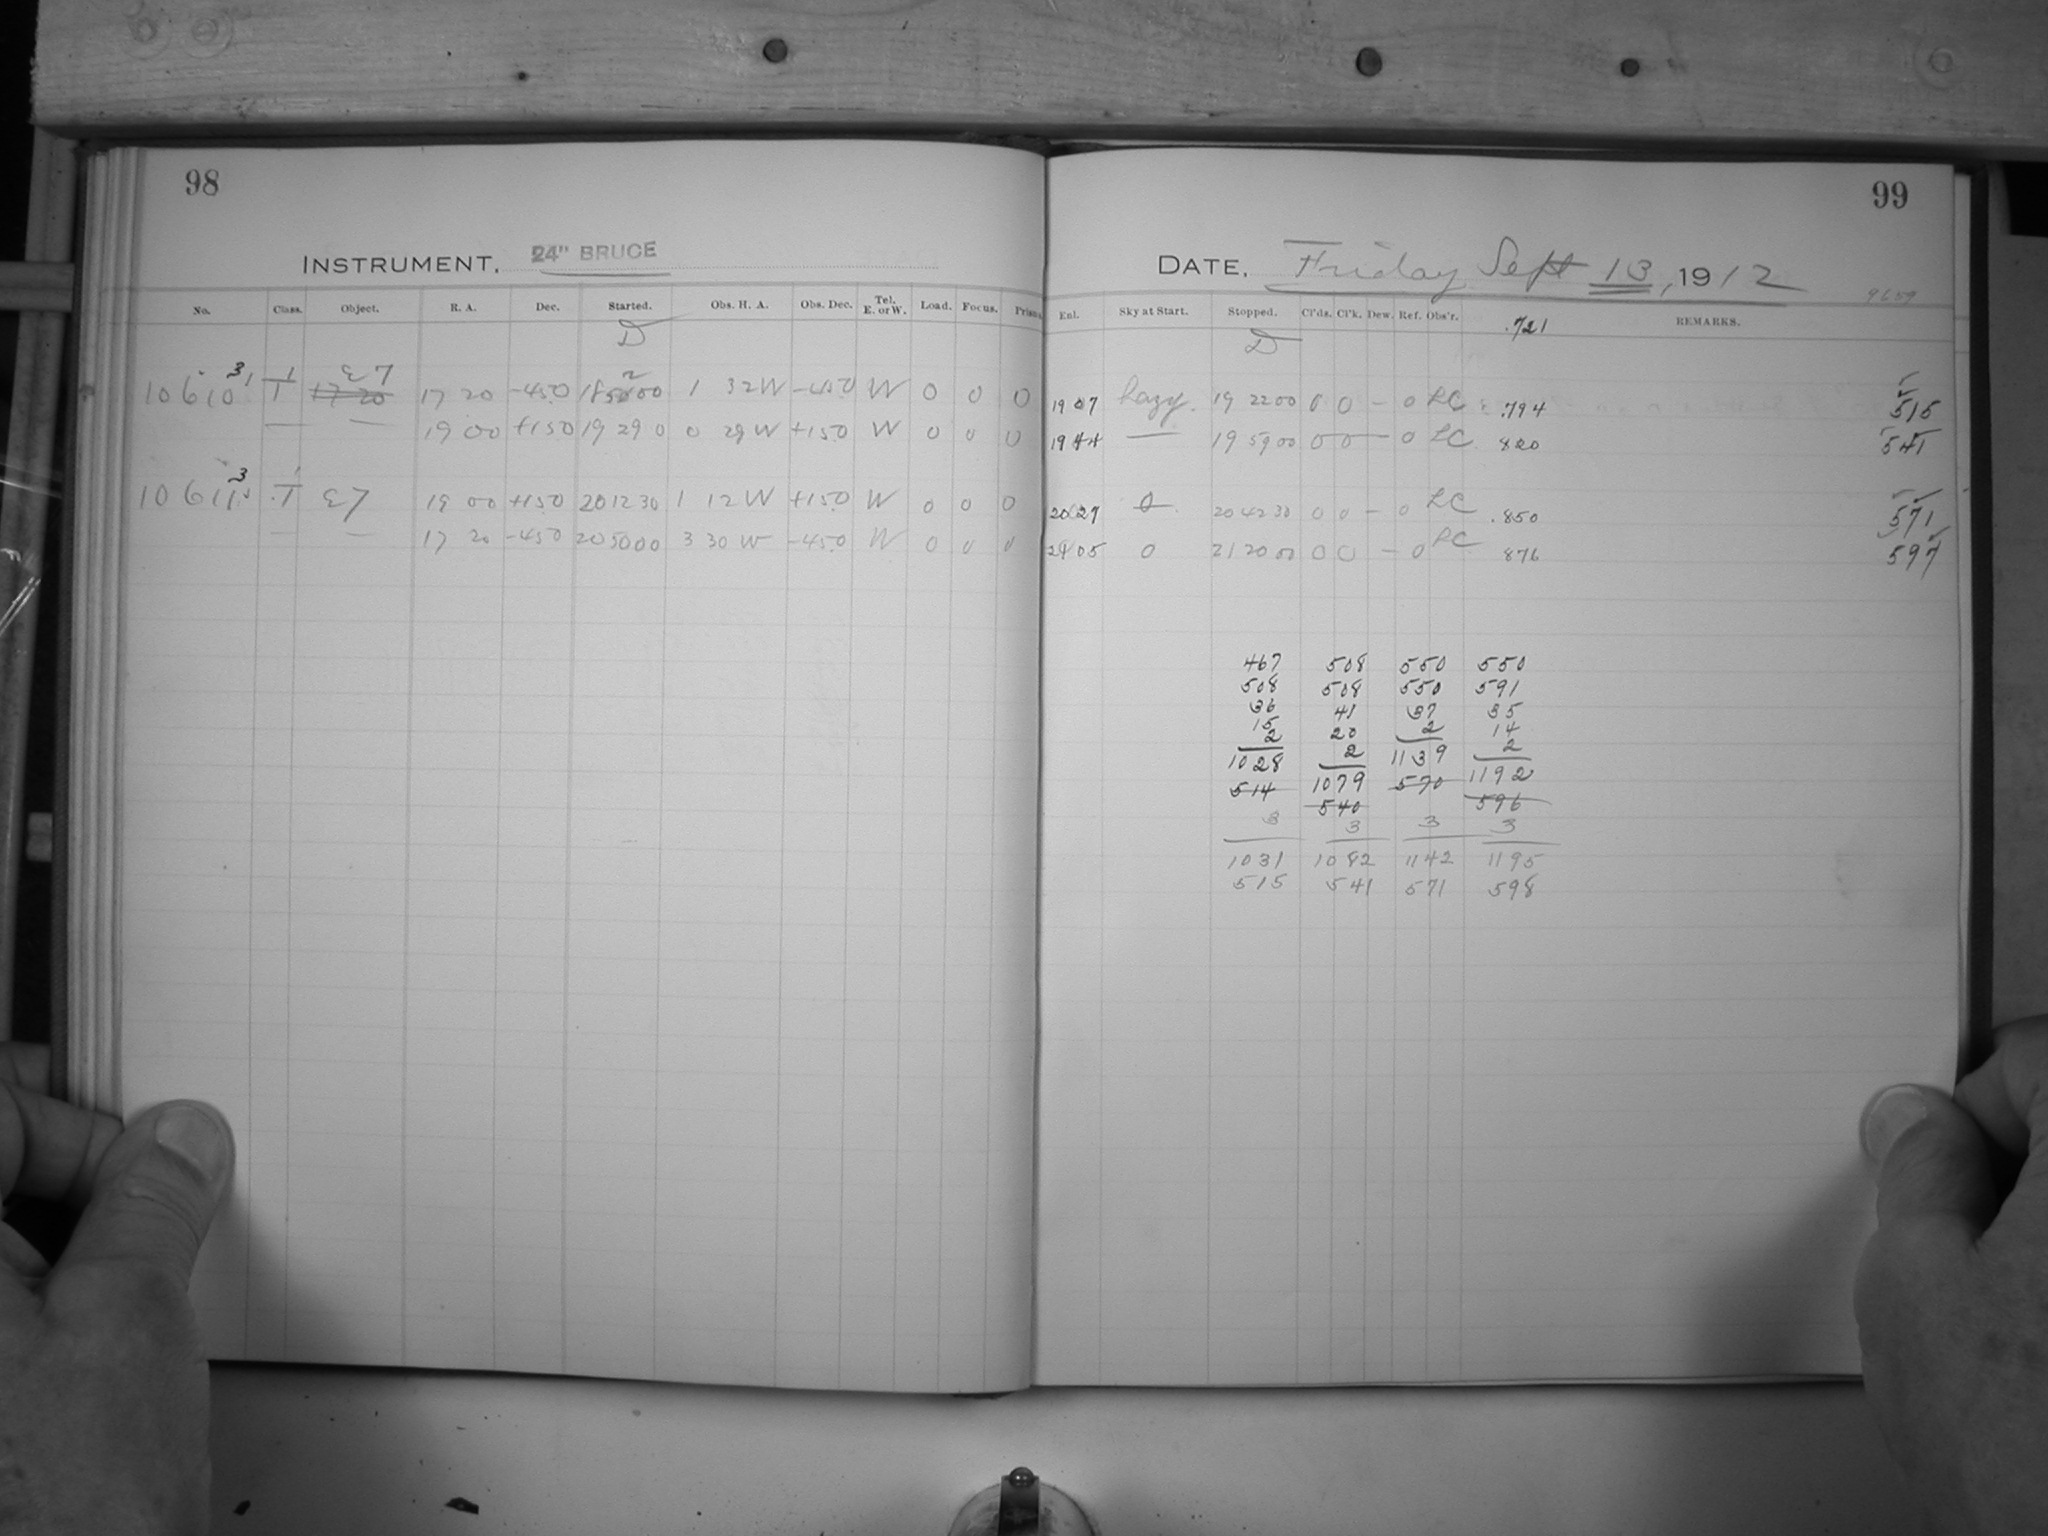 98
INSTRUMENT, 24" BRUCE
No. Class. Object. R. A. Dec. Started. Obs. H. A. Obs. Dec. Tel. E. or W. Load. Focus. Prism.
D
E7
10610 3 1 17 20 17 20 -45.0 1 32 W -45.0 W 0 0 0
— — 19 00 +15.0 19 29 0 0 29 W +15.0 W 0 0 0
10611 3 1 E7 19 00 +15.0 20 12 30 1 12 W +15.0 W 0 0 0
— — 17 20 -45.0 20 50 00 3 30 W -45.0 W 0 0 0
99
DATE, Friday Sept 13, 1912
9659
Enl. Sky at Start. Stopped. Cl'ds. Cl'k. Dew. Ref. Obs'r. .721 REMARKS.
D
19 07 hazy. 19 22 00 0 0 - 0 LC .794 515
19 44 — 19 59 00 0 0 — 0 LC .820 541
20 27 0 20 42 30 0 0 - 0 LC .850 571
05 0 21 20 00 0 0 - 0 LC 876 597
467 508 550 550
508 508 550 591
36 41 37 35
15 20 2 14
2 2 1139 2
1028 1079 570 1192
514 540 596
3 3 3 3
1031 1082 1142 1195
515 541 571 598